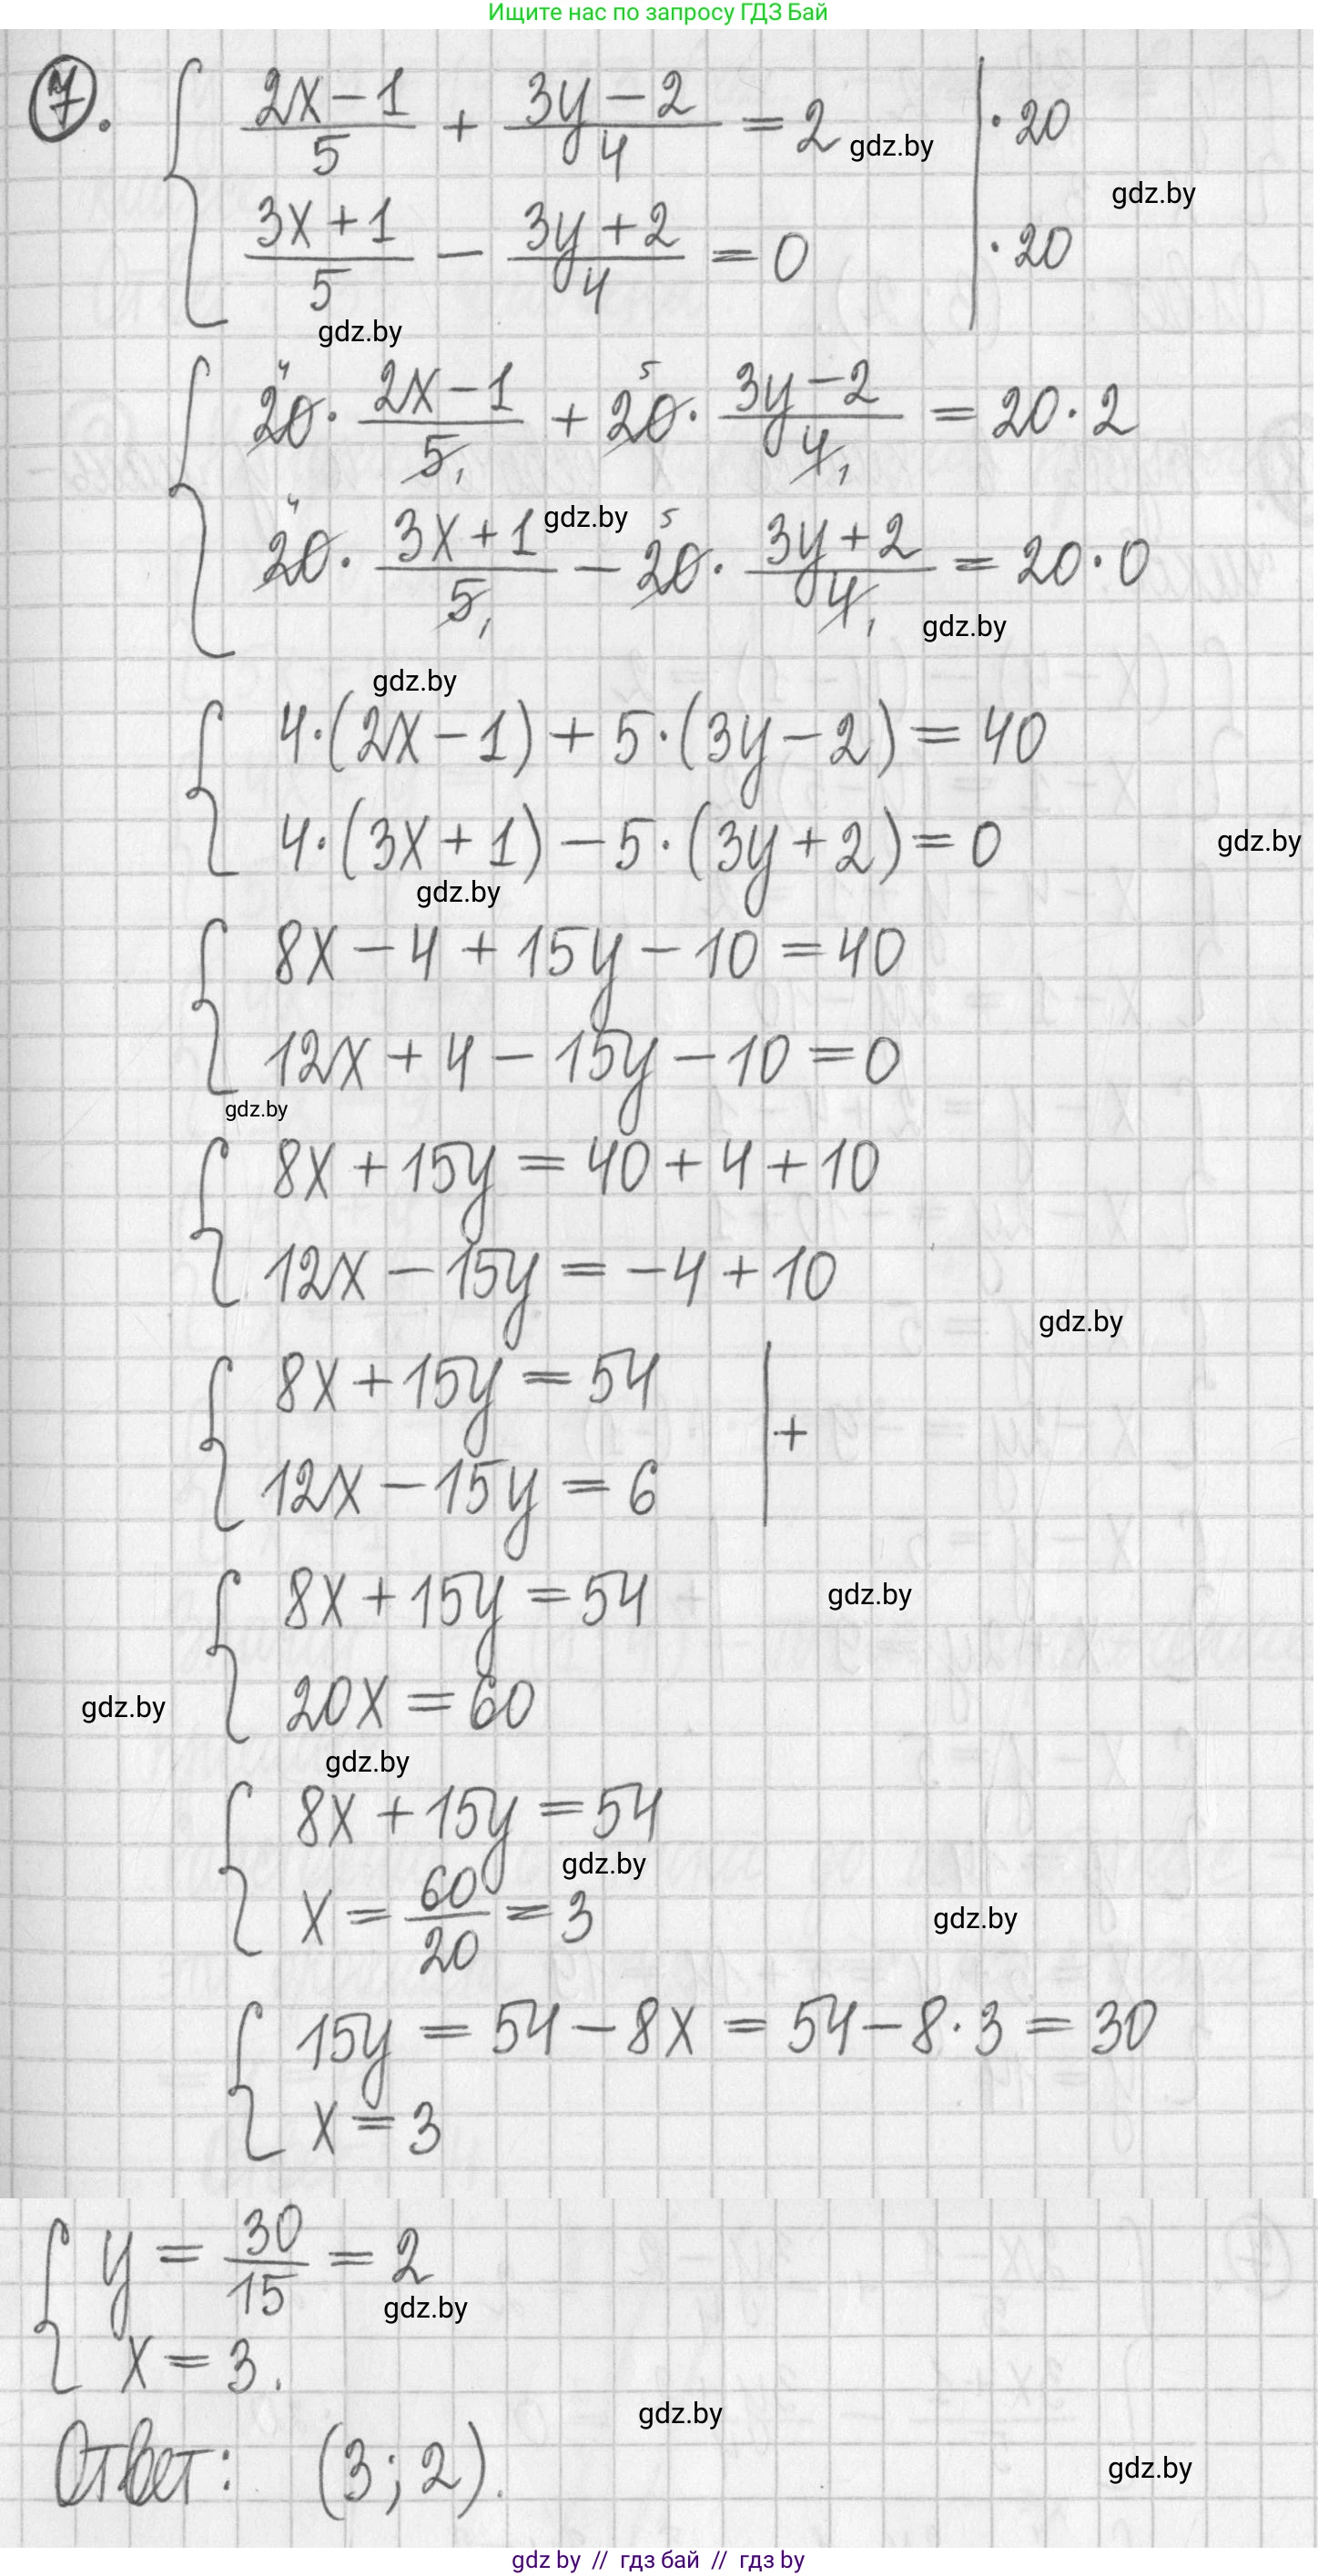 Ищите нас по запросу ГДЗ Бай
7. { (2x-1)/5 + (3y-2)/4 = 2 | ·20
gdz.by
gdz.by
(3x+1)/5 - (3y+2)/4 = 0 | ·20
gdz.by
{ 20⁴ · (2x-1)/5₁ + 20⁵ · (3y-2)/4₁ = 20·2
20⁴ · (3x+1)/5₁ - 20⁵ · (3y+2)/4₁ = 20·0
gdz.by
gdz.by
gdz.by
{ 4·(2x-1)+5·(3y-2)=40
4·(3x+1)-5·(3y+2)=0
gdz.by
gdz.by
{ 8x-4+15y-10=40
12x+4-15y-10=0
gdz.by
{ 8x+15y=40+4+10
12x-15y=-4+10
gdz.by
{ 8x+15y=54
12x-15y=6 | +
{ 8x+15y=54
gdz.by
20x=60
gdz.by
gdz.by
{ 8x+15y=54
gdz.by
x=60/20=3
gdz.by
{ 15y=54-8x=54-8·3=30
x=3
{ y=30/15=2
gdz.by
x=3.
gdz.by
Ответ: (3; 2).
gdz.by
gdz by // гдз бай // гдз by